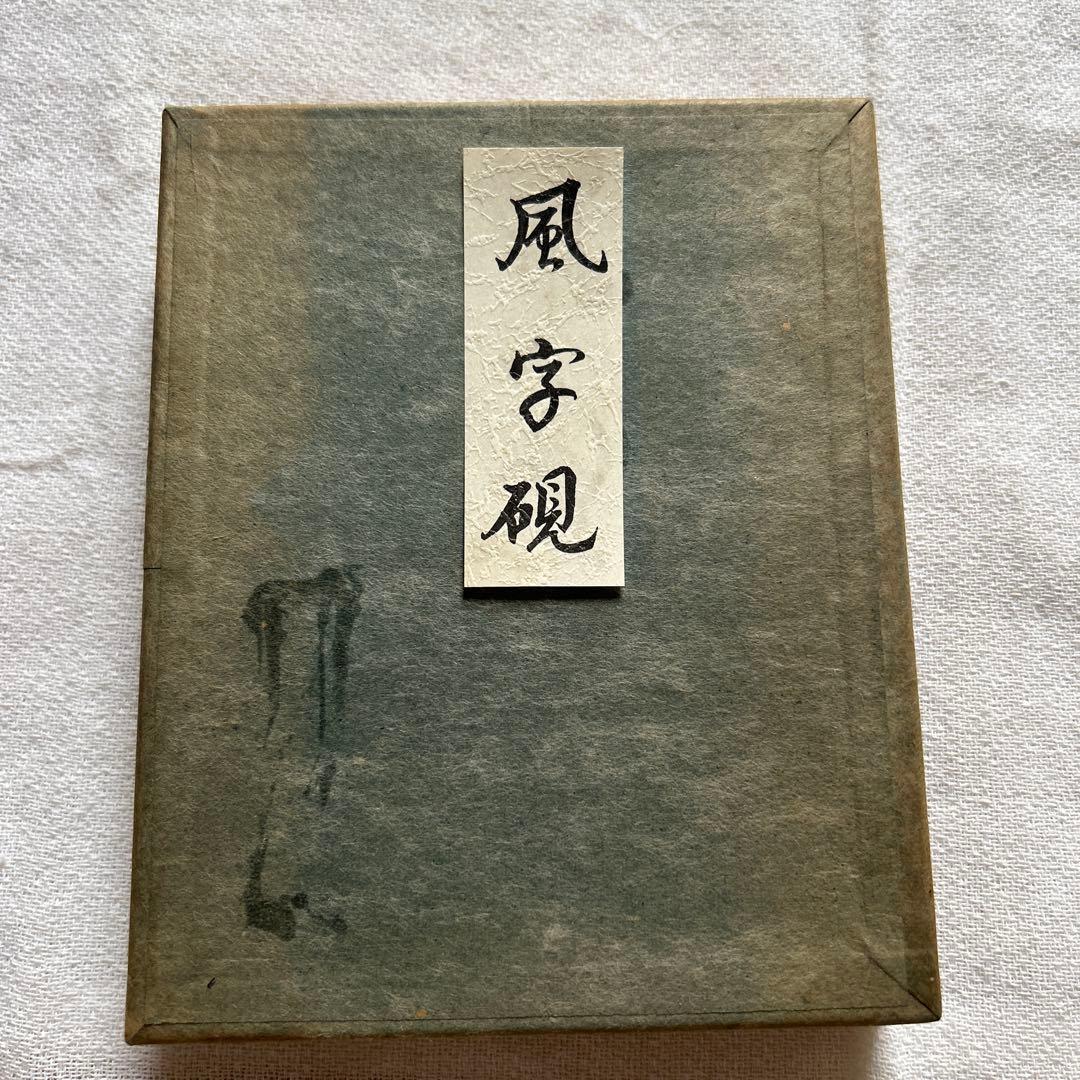 風字硯